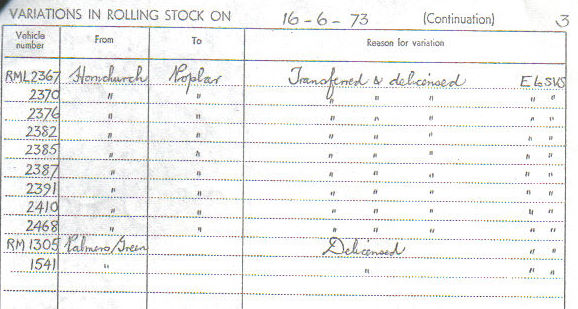 VARIATIONS IN ROLLING STOCK ON 16-6-73 (Continuation) 3
Vehicle number From To Reason for variation
RML2367 Hornchurch Poplar Transferred & delicensed E6 SVS
2370 " " " " " " "
2376 " " " " " " "
2382 " " " " " " "
2385 " " " " " " "
2387 " " " " " " "
2391 " " " " " " "
2410 " " " " " " "
2468 " " " " " " "
RM1305 Palmers/Green Delicensed " "
1541 " " " "